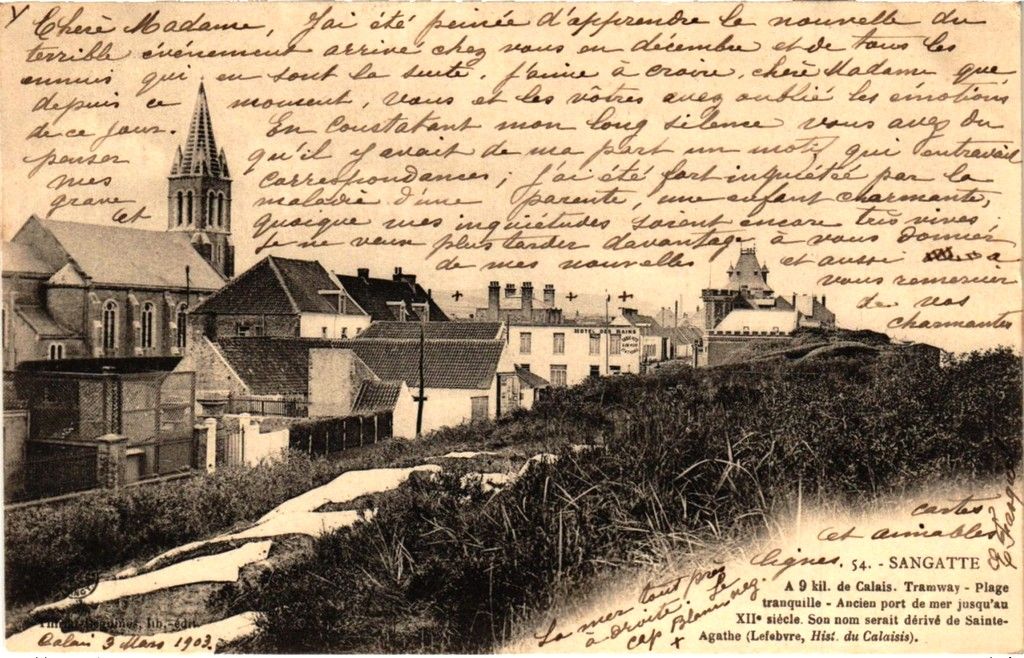 Chère Madame, J'ai été peinée d'apprendre la nouvelle du
terrible événement arrivé chez vous en décembre et de tous les
ennuis qui en sont la suite. J'aime à croire, chère Madame que
depuis ce moment, vous et les vôtres avez oublié les émotions
de ce jour. En constatant mon long silence vous avez du
penser qu'il y avait de ma part un motif qui entravait
mes correspondances; j'ai été fort inquiétée par la
grave maladie d'une parente, une enfant charmante,
et quoique mes inquiétudes soient encore très vives
je ne veux plus tarder davantage à vous donner
de mes nouvelles et aussi à
vous remercier
de vos
charmantes
cartes
et aimables
lignes.
HOTEL DES BAINS
54. - SANGATTE
A 9 kil. de Calais. Tramway - Plage
tranquille - Ancien port de mer jusqu'au
XIIe siécle. Son nom serait dérivé de Sainte-
Agathe (Lefebvre, Hist. du Calaisis).
La mer tout près
à droite. Le
cap Blanc nez.
lib.-édit.
Calais 3 Mars 1903.